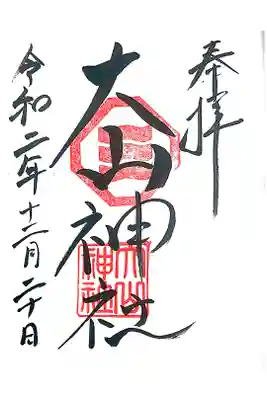 奉拝
大山神社
大山
神社
令和二年十二月二十日